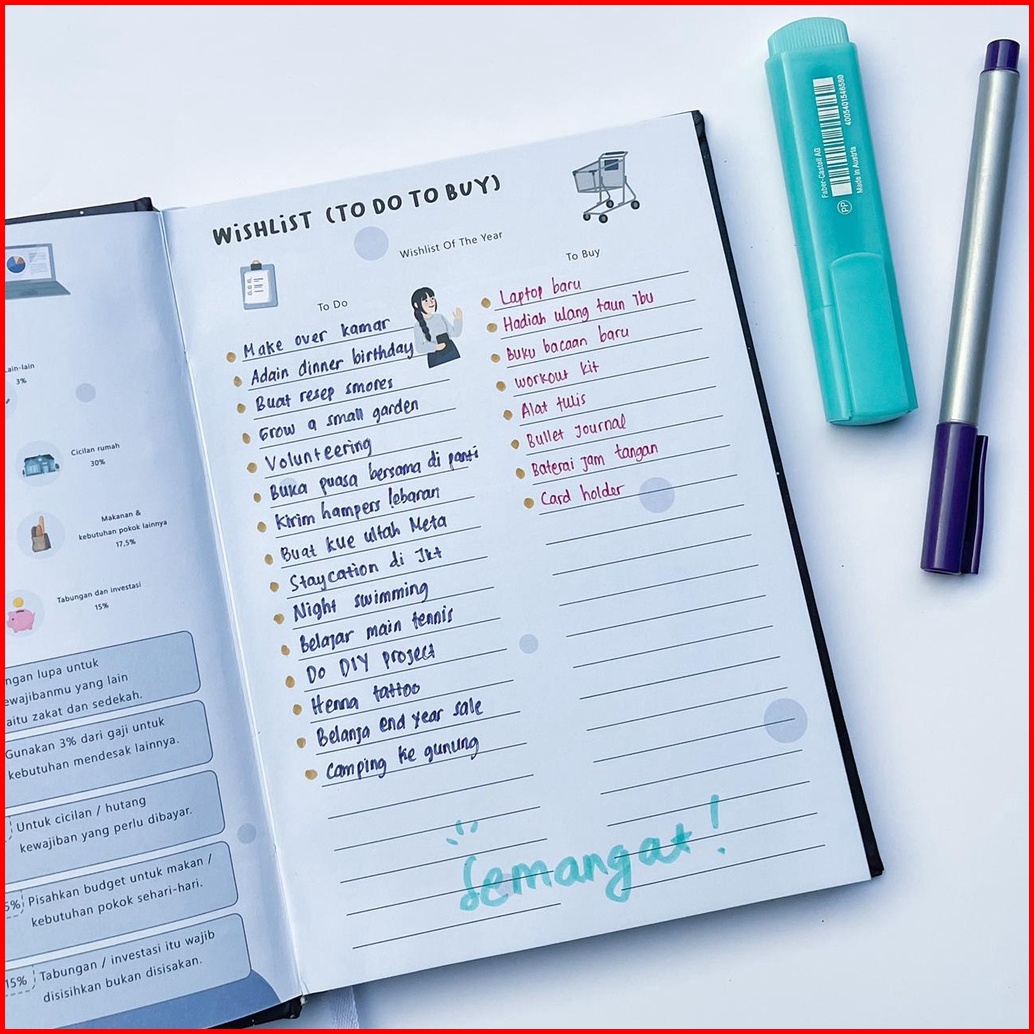 Lain-lain
3%
Cicilan rumah
30%
Makanan &
kebutuhan pokok lainnya
17,5%
Tabungan dan investasi
15%
ngan lupa untuk
ewajibanmu yang lain
aitu zakat dan sedekah.
Gunakan 3% dari gaji untuk
kebutuhan mendesak lainnya.
Untuk cicilan / hutang
kewajiban yang perlu dibayar.
5% Pisahkan budget untuk makan /
kebutuhan pokok sehari-hari.
15% Tabungan / investasi itu wajib
disisihkan bukan disisakan.
WiSHLiST (TO DO TO BUY)
Wishlist Of The Year
To Do
Make over kamar
Adain dinner birthday
Buat resep smores
Grow a small garden
Volunteering
Buka puasa bersama di panti
Kirim hampers lebaran
Buat kue ultah Meta
Staycation di Jkt
Night swimming
Belajar main tennis
Do DIY project
Henna tattoo
Belanja end year sale
Camping ke gunung
To Buy
Laptop baru
Hadiah ulang taun Ibu
Buku bacaan baru
workout kit
Alat tulis
Bullet Journal
Baterai jam tangan
Card holder
Semangat!
Faber-Castell AG
Made in Austria
PP
4005401546580